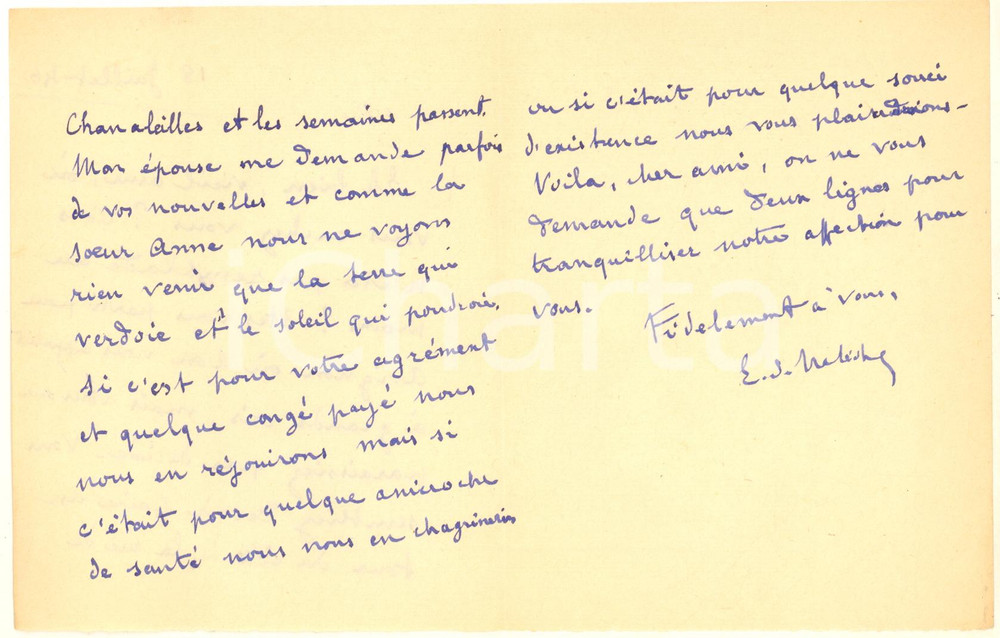 Chanaleilles et les semaines passent.
Mon épouse me demande parfois
de vos nouvelles et comme la
sœur Anne nous ne voyons
rien venir que la terre qui
verdoie et le soleil qui poudroie.
Si c'est pour votre agrément
et quelque congé payé nous
nous en réjouirons mais si
c'était pour quelque anicroche
de santé nous nous en chagrinerions
ou si c'était pour quelque souci
d'existence nous vous plaindrions-
Voila, cher ami, on ne vous
demande que deux lignes pour
tranquilliser notre affection pour
vous.
Fidelement à vous,
E. d.
iCharta